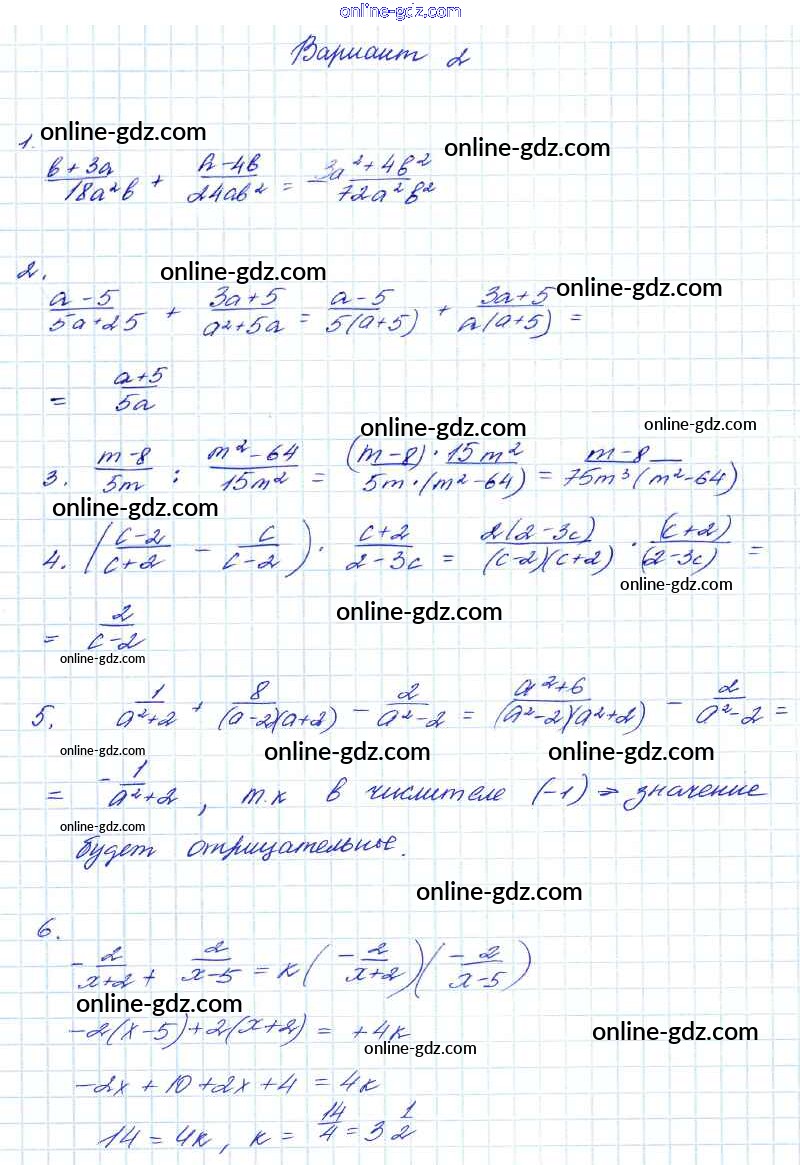 online-gdz.com
Вариант 2
online-gdz.com
online-gdz.com
1. (в+3a)/(18a²в) + (a-4в)/(24aв²) = (3a²+4в²)/(72a²в²)
online-gdz.com
online-gdz.com
2. (a-5)/(5a+25) + (3a+5)/(a²+5a) = (a-5)/(5(a+5)) + (3a+5)/(a(a+5)) =
= (a+5)/(5a)
online-gdz.com
online-gdz.com
3. (m-8)/(5m) : (m²-64)/(15m²) = ((m-8)·15m²)/(5m·(m²-64)) = (m-8)/(75m³(m²-64))
online-gdz.com
4. ((c-2)/(c+2) - c/(c-2)) · (c+2)/(2-3c) = (2(2-3c))/((c-2)(c+2)) · ((c+2))/((2-3c)) =
online-gdz.com
online-gdz.com
= 2/(c-2)
online-gdz.com
5. 1/(a²+2) + 8/((a-2)(a+2)) - 2/(a²-2) = (a²+6)/((a²-2)(a²+2)) - 2/(a²-2) =
online-gdz.com
online-gdz.com
online-gdz.com
= -1/(a²+2), т.к в числителе (-1) ⇒ значение
online-gdz.com
будет отрицательные.
online-gdz.com
6.
-2/(x+2) + 2/(x-5) = к(-2/(x+2))(-2/(x-5))
online-gdz.com
-2(x-5)+2(x+2) = +4к
online-gdz.com
online-gdz.com
-2x+10+2x+4 = 4к
14 = 4к, к = 14/4 = 3 1/2